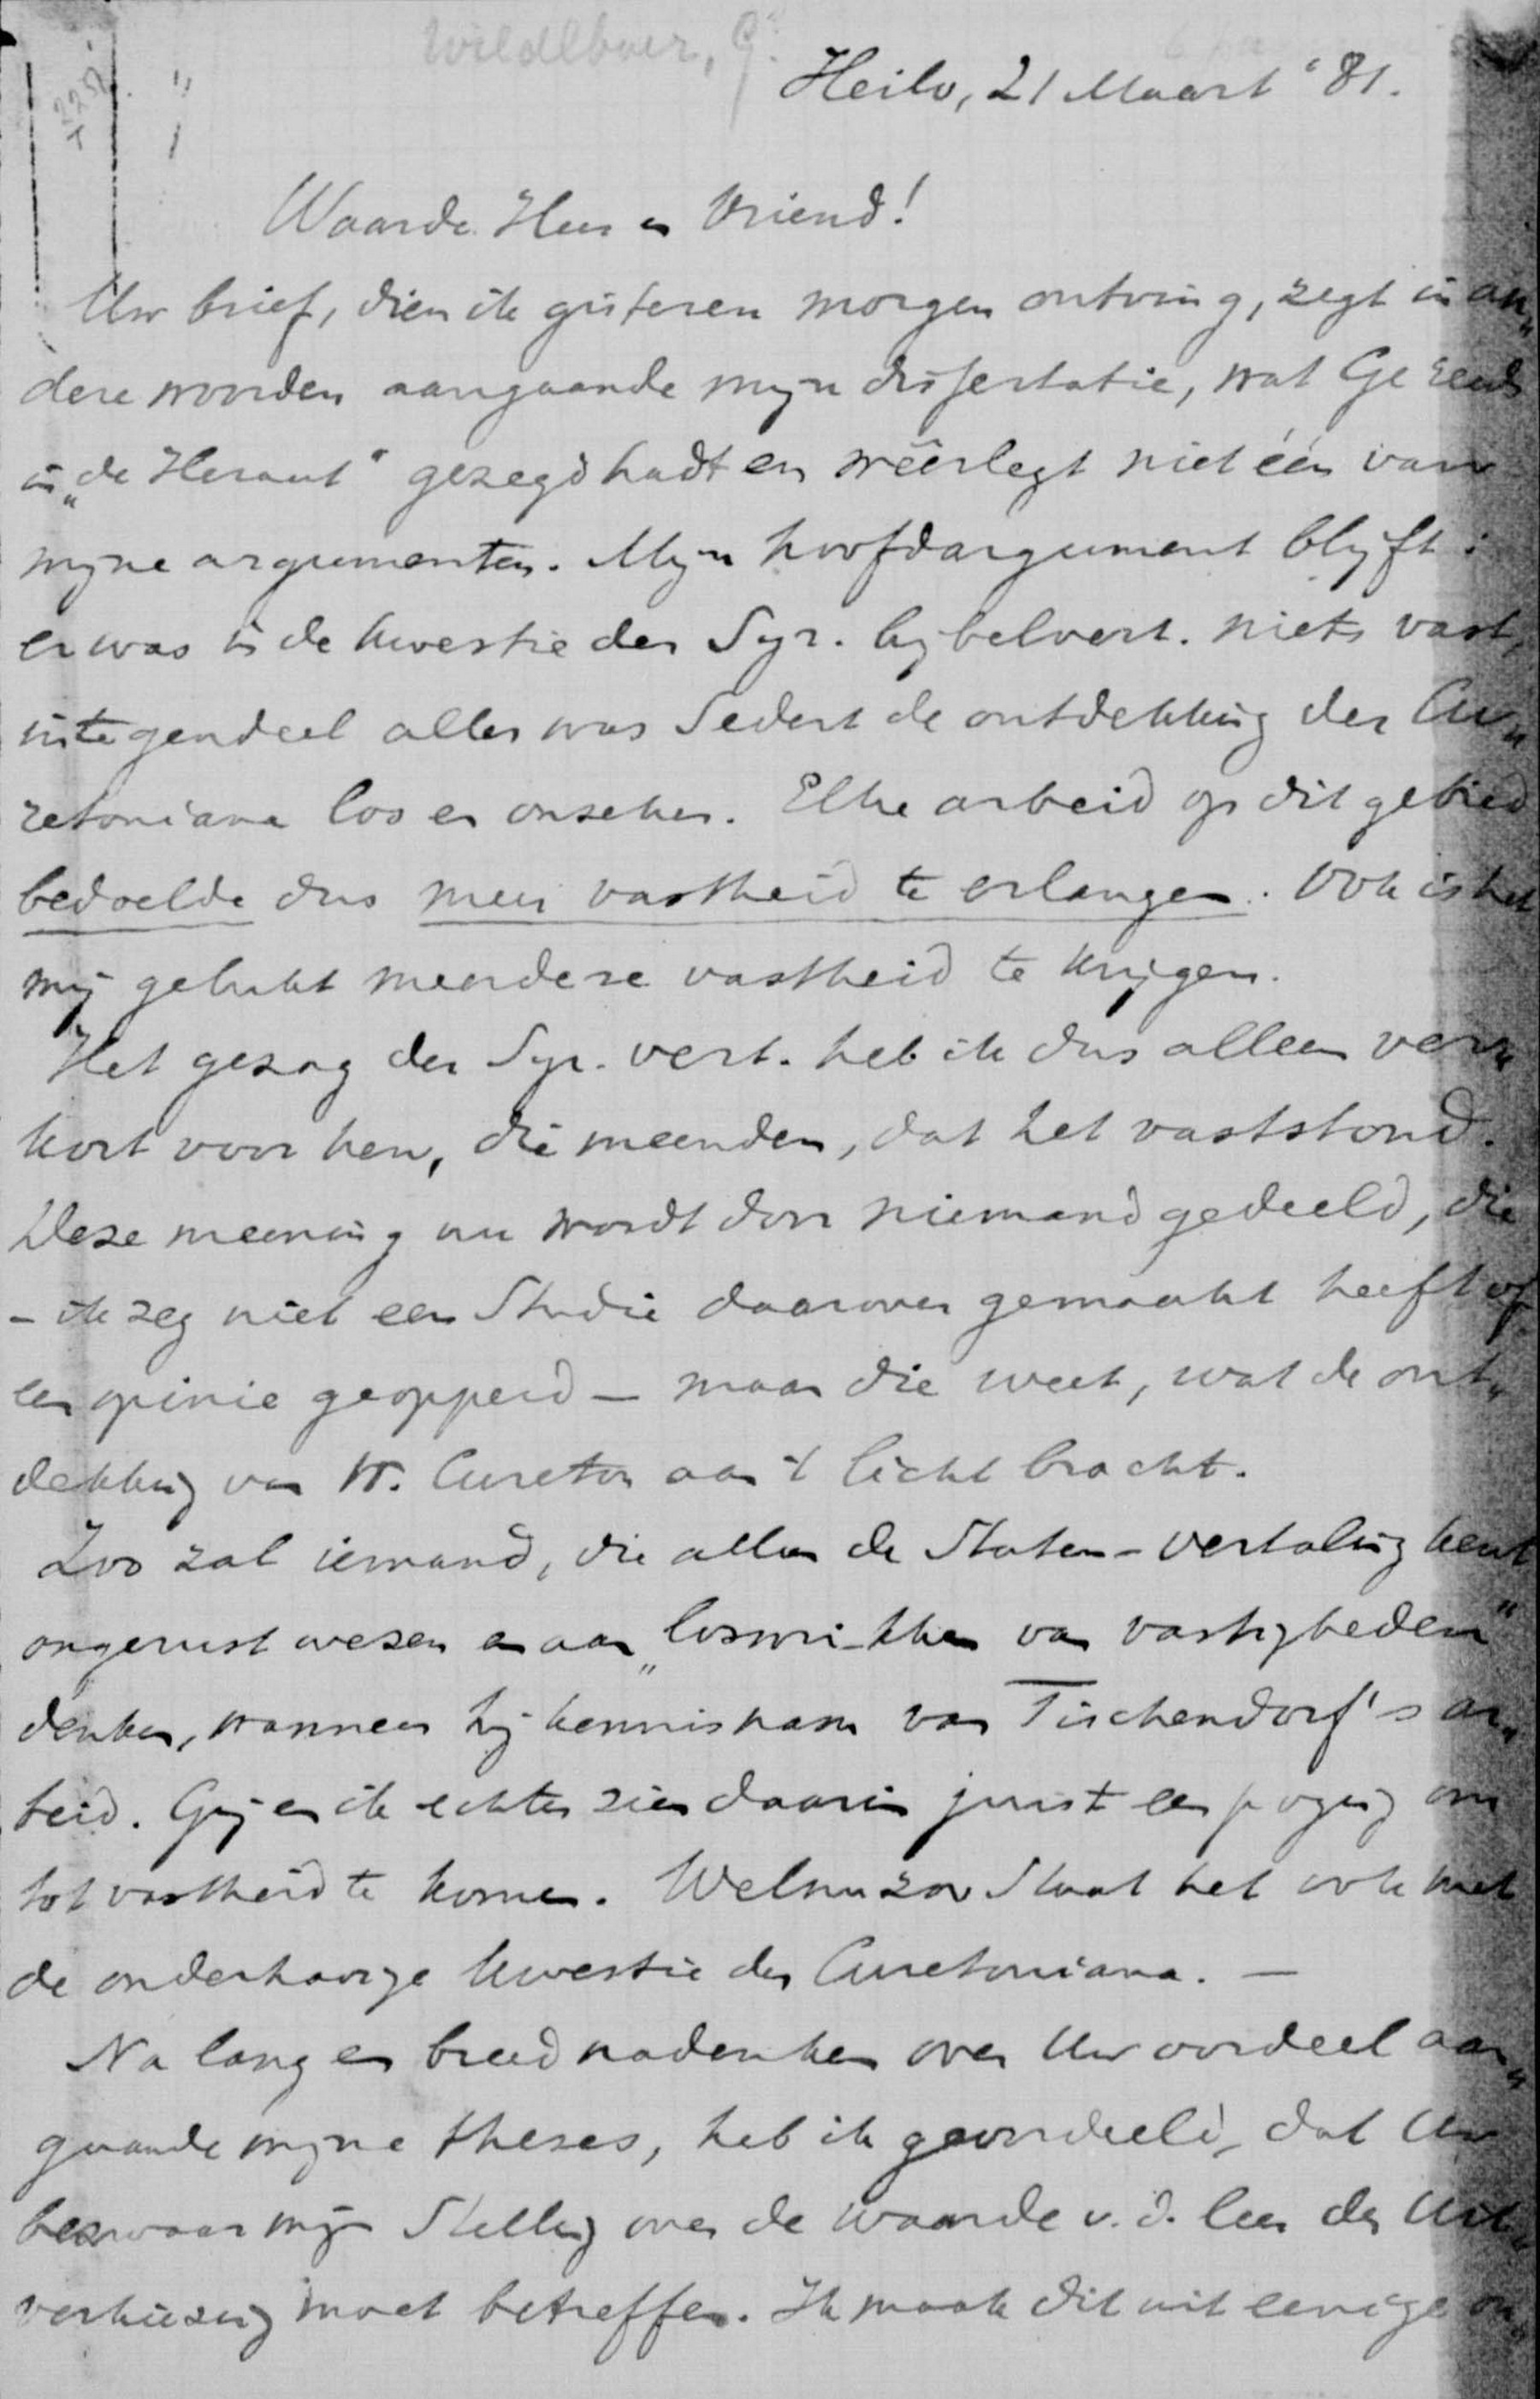 Wildeboer, G.
Heilo, 21 Maart '81.
Waarde Heer en Vriend!
Uw brief, dien ik gisteren morgen ontving, zegt in an„
dere woorden aangaande mijn dissertatie, wat Ge reeds
in „de Heraut" gezegd hadt en wêerlegt niet één van
mijne argumenten. Mijn hoofdargument blijft:
er was in de kwestie der Syr. bijbelvert. niets vast,
integendeel alles was sedert de ontdekking der Cu„
retoniana los en onzeker. Elke arbeid op dit gebied
bedoelde dus meer vastheid te erlangen. Ook is het
mij gelukt meerdere vastheid te krijgen.
Het gezag der Syr. vert. heb ik dus alleen ver„
kort voor hen, die meenden, dat het vaststond.
Deze meening nu wordt door niemand gedeeld, die
– ik zeg niet een studie daarover gemaakt heeft of
een opinie geopperd – maar die weet, wat de ont„
dekking van W. Cureton aan 't licht bracht.
Zoo zal iemand, die alleen de Staten-vertaling kent
ongerust wezen en aan „loswrikken van vastigheden"
denken, wanneer hij kennis nam van Tischendorf's ar„
beid. Gij en ik echter zien daarin juist een poging om
tot vastheid te komen. Welnu zoo staat het ook met
de onderhavige kwestie der Curetoniana. –
Na lang en breed nadenken over Uw oordeel aan„
gaande mijne theses, heb ik geoordeeld, dat Uw
bezwaar mijn stelling over de waarde v. d. leer der Uit„
verkiezing moet betreffen. Ik maak dit uit eenige on„